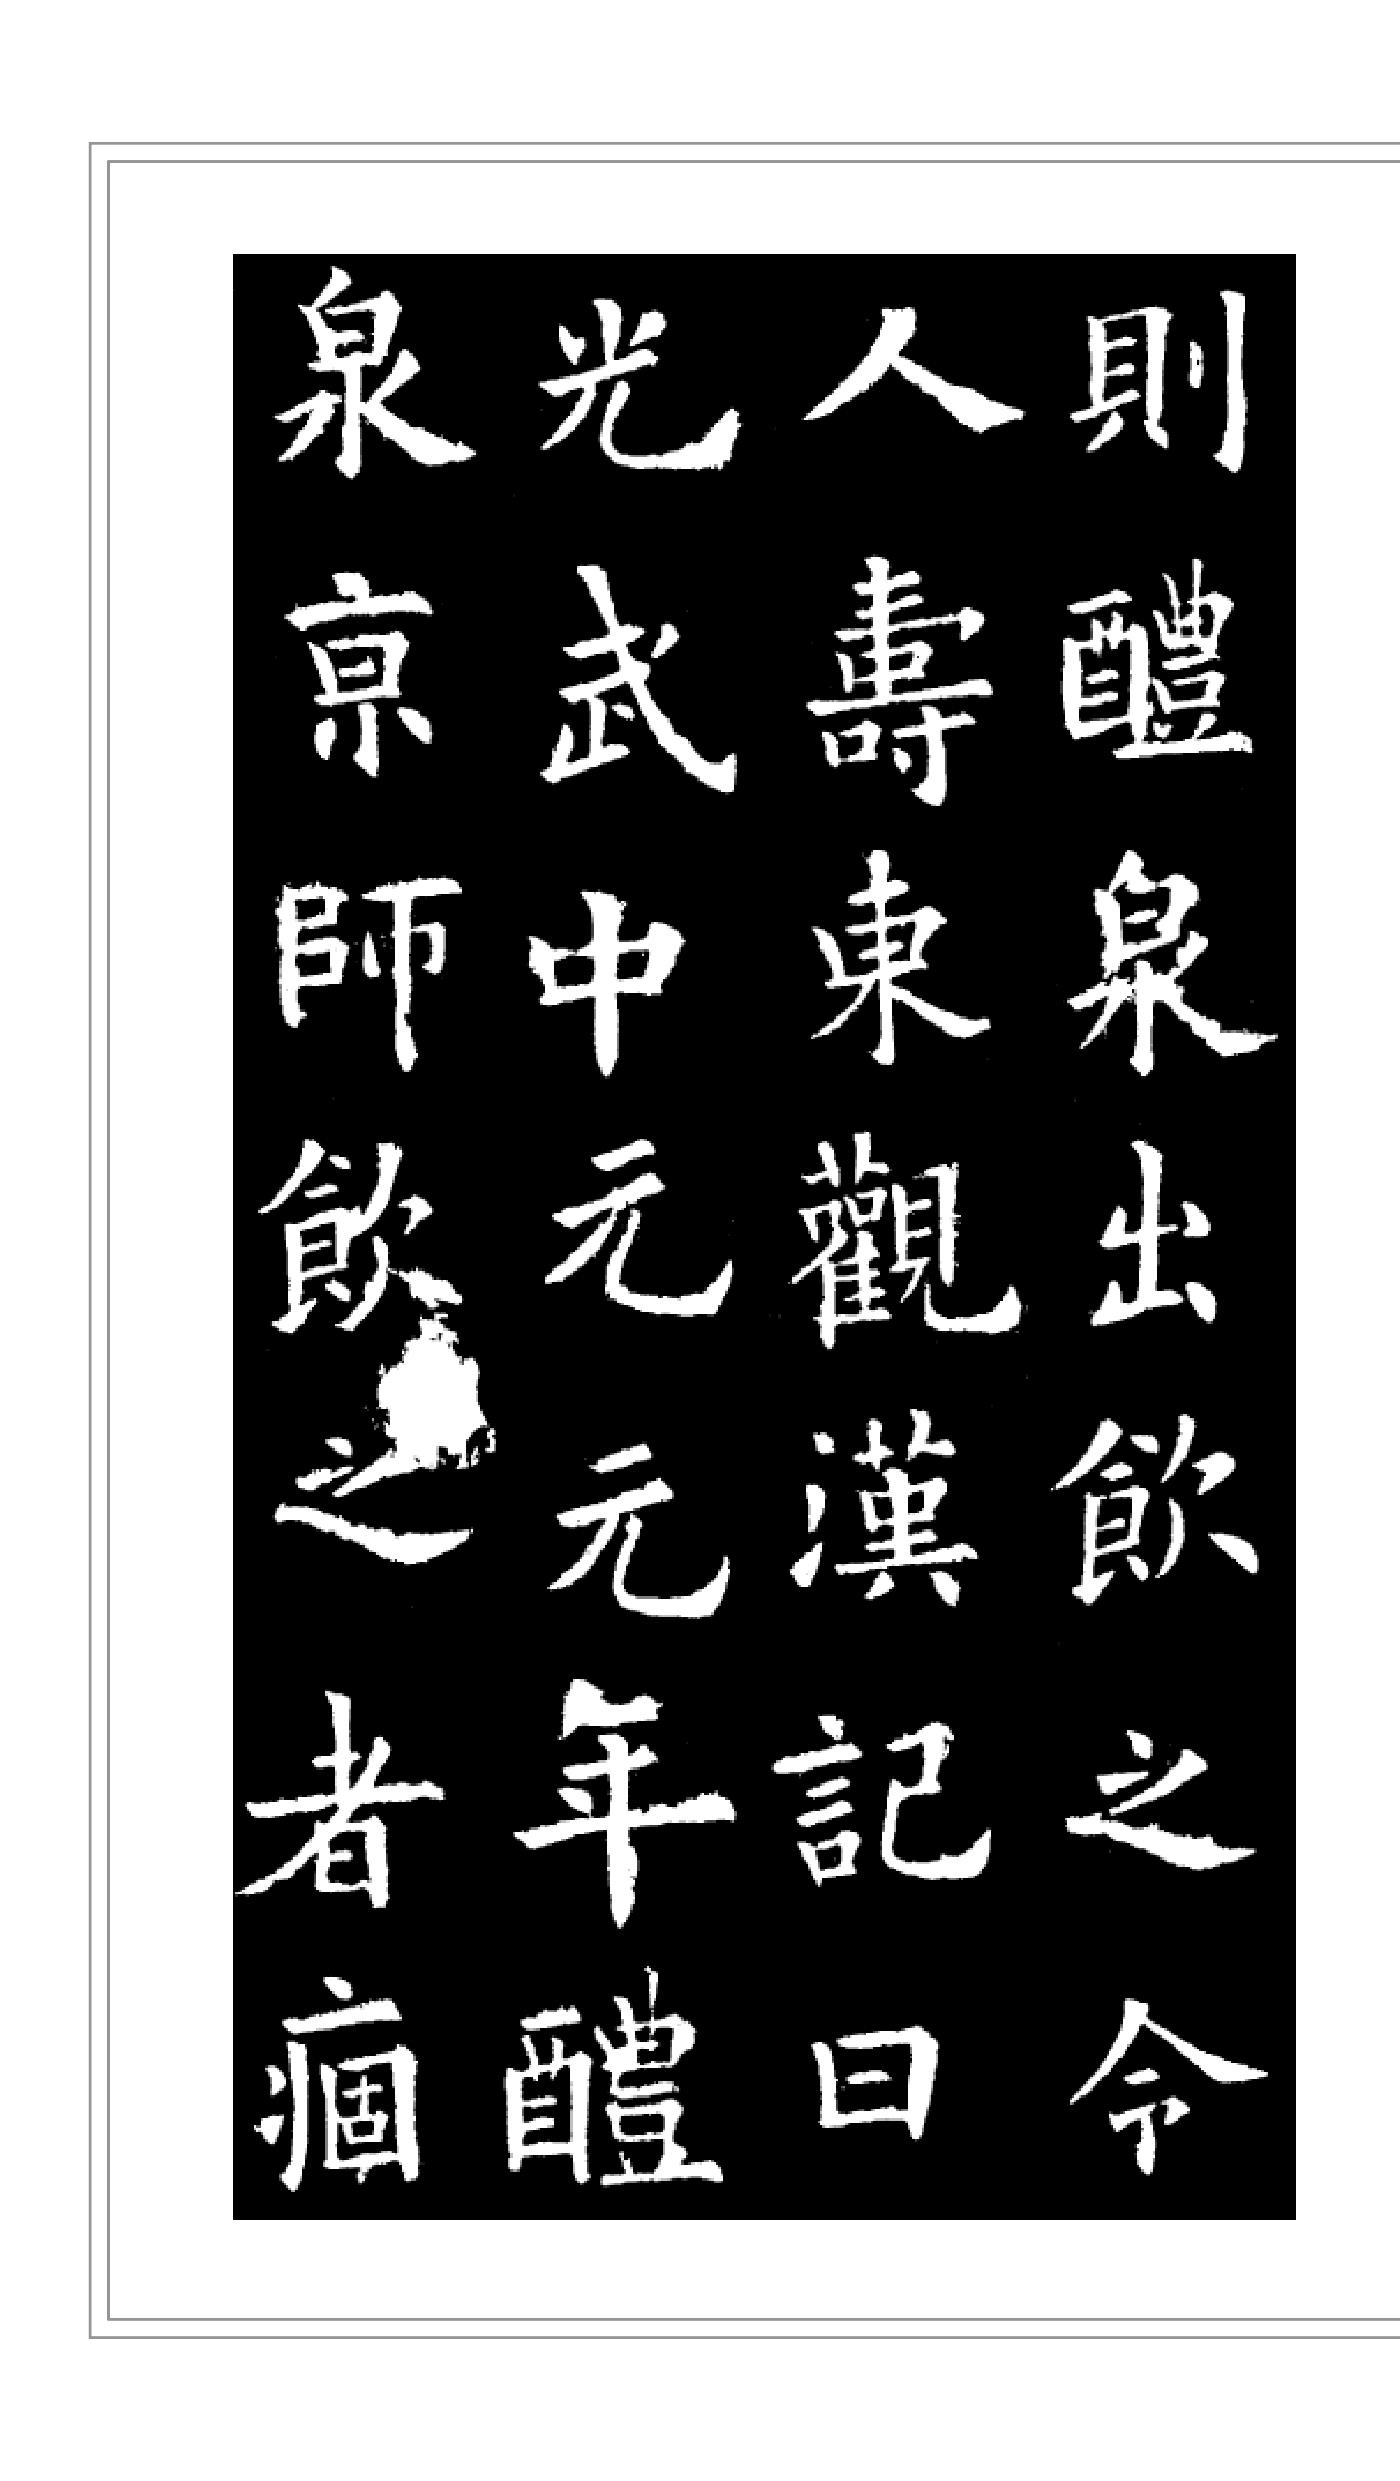 則醴泉出飲之令
人壽東觀漢記曰
光武中元元年醴
泉京師飲之者痼